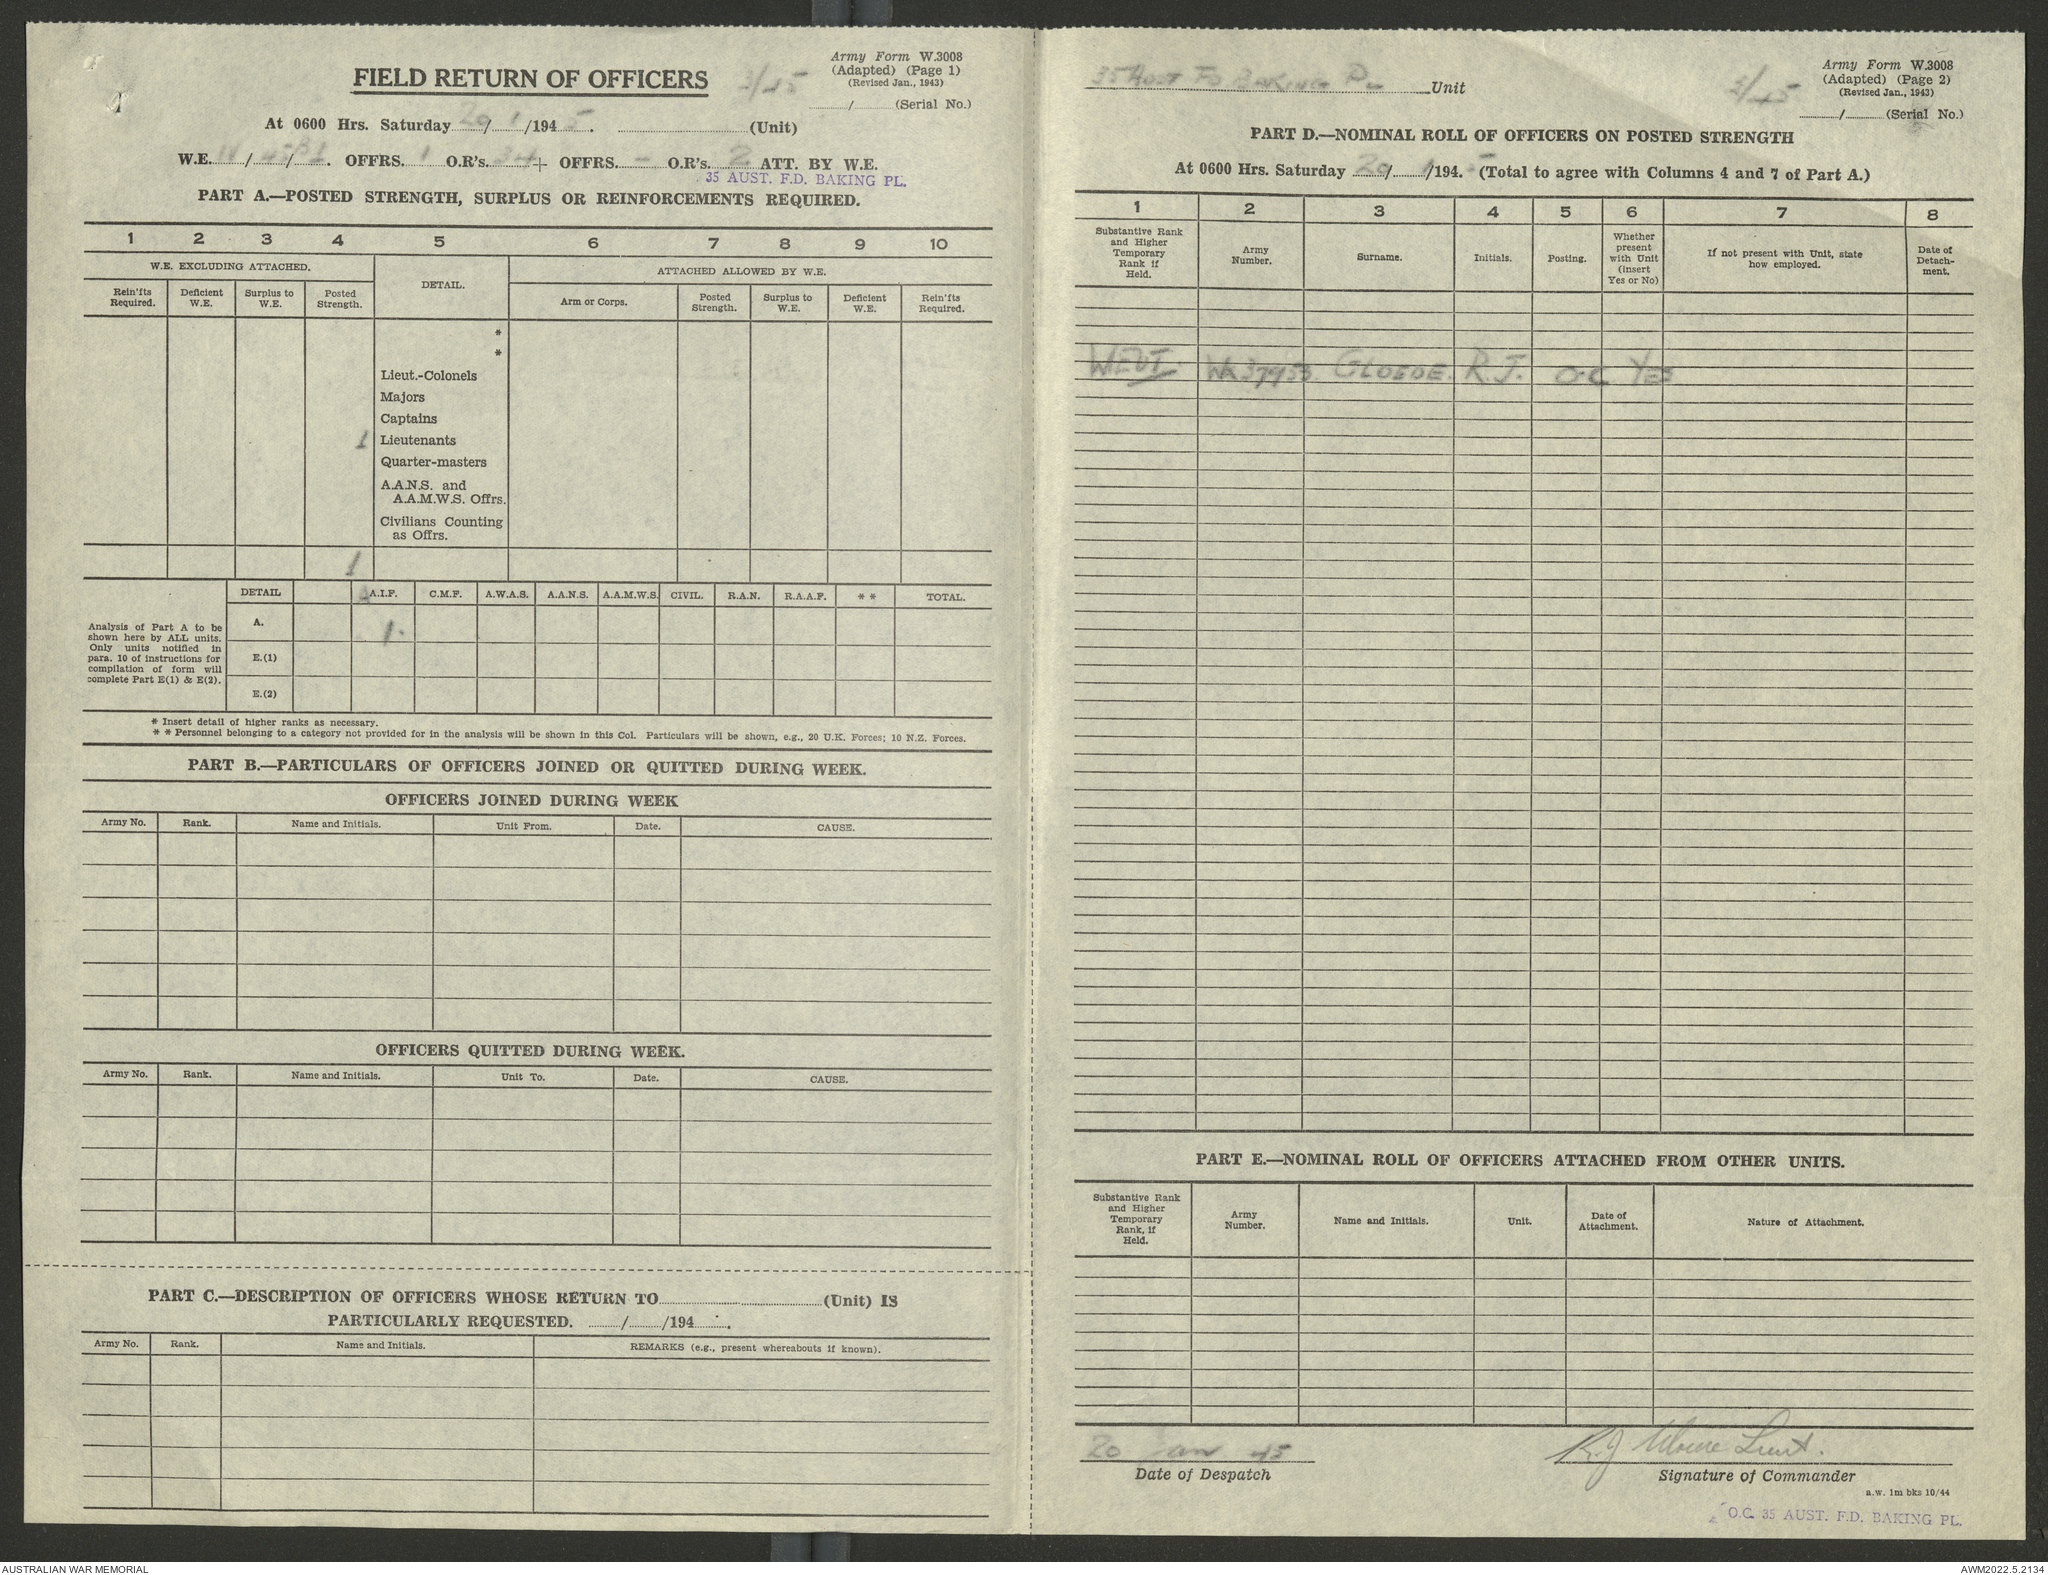 Army Form W.3008
(Adapted) (Page 1)
(Revised Jan., 1943)
FIELD RETURN OF OFFICERS
3/45
....../...... (Serial No.)
At 0600 Hrs. Saturday 20/1/1945. (Unit)
W.E. IV/ OFFRS. 1 O.R's. 34 + OFFRS. - O.R's. 2 ATT. BY W.E.
35 AUST. F.D. BAKING PL.
PART A.—POSTED STRENGTH, SURPLUS OR REINFORCEMENTS REQUIRED.
1 2 3 4 5 6 7 8 9 10
W.E. EXCLUDING ATTACHED.
DETAIL.
ATTACHED ALLOWED BY W.E.
Rein'fts Required.
Deficient W.E.
Surplus to W.E.
Posted Strength.
Arm or Corps.
Posted Strength.
Surplus to W.E.
Deficient W.E.
Rein'fts Required.
*
*
Lieut.-Colonels
Majors
Captains
1 Lieutenants
Quarter-masters
A.A.N.S. and
A.A.M.W.S. Offrs.
Civilians Counting
as Offrs.
1
DETAIL A.I.F. C.M.F. A.W.A.S. A.A.N.S. A.A.M.W.S. CIVIL. R.A.N. R.A.A.F. ** TOTAL.
Analysis of Part A to be
shown here by ALL units.
Only units notified in
para. 10 of instructions for
compilation of form will
complete Part E(1) & E(2).
A. 1.
E.(1)
E.(2)
* Insert detail of higher ranks as necessary.
* * Personnel belonging to a category not provided for in the analysis will be shown in this Col. Particulars will be shown, e.g., 20 U.K. Forces; 10 N.Z. Forces.
PART B.—PARTICULARS OF OFFICERS JOINED OR QUITTED DURING WEEK.
OFFICERS JOINED DURING WEEK
Army No. Rank. Name and Initials. Unit From. Date. CAUSE.
OFFICERS QUITTED DURING WEEK.
Army No. Rank. Name and Initials. Unit To. Date. CAUSE.
PART C.—DESCRIPTION OF OFFICERS WHOSE RETURN TO (Unit) IS
PARTICULARLY REQUESTED. ....../....../194....
Army No. Rank. Name and Initials. REMARKS (e.g., present whereabouts if known).
Army Form W.3008
(Adapted) (Page 2)
(Revised Jan., 1943)
35 AUST FD BAKING PL Unit
3/45
....../...... (Serial No.)
PART D.—NOMINAL ROLL OF OFFICERS ON POSTED STRENGTH
At 0600 Hrs. Saturday 20/1/1945 (Total to agree with Columns 4 and 7 of Part A.)
1 2 3 4 5 6 7 8
Substantive Rank
and Higher
Temporary
Rank if
Held.
Army
Number.
Surname.
Initials.
Posting.
Whether
present
with Unit
(insert
Yes or No)
If not present with Unit, state
how employed.
Date of
Detach-
ment.
GLOEDE. R.J. OC YES
PART E.—NOMINAL ROLL OF OFFICERS ATTACHED FROM OTHER UNITS.
Substantive Rank
and Higher
Temporary
Rank, if
Held.
Army
Number.
Name and Initials.
Unit.
Date of
Attachment.
Nature of Attachment.
20 Jan 45
Date of Despatch
R.J. Gloede Lieut.
Signature of Commander
a.w. 1m bks 10/44
O.C. 35 AUST. F.D. BAKING PL.
AUSTRALIAN WAR MEMORIAL
AWM2022.5.2134